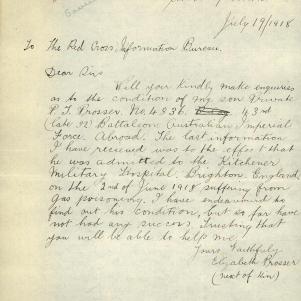 July 19/1918
To The Red Cross, Information Bureau.
Dear Sirs
Will you kindly make enquiries
as to the condition of my son Private
P. J. Prosser. No 4836. 43rd
(late 32) Battalion, Australian Imperial
Force Abroad. The last information
I have received was to the effect that
he was admitted to the Kitchener
Military Hospital. Brighton. England.
on the 2nd of June 1918 suffering from
gas poisoning. I have endeavoured to
find out his condition, but so far have
not had any success. Trusting that
you will be able to help me.
Yours faithfully
Elizabeth Prosser
(next of kin)